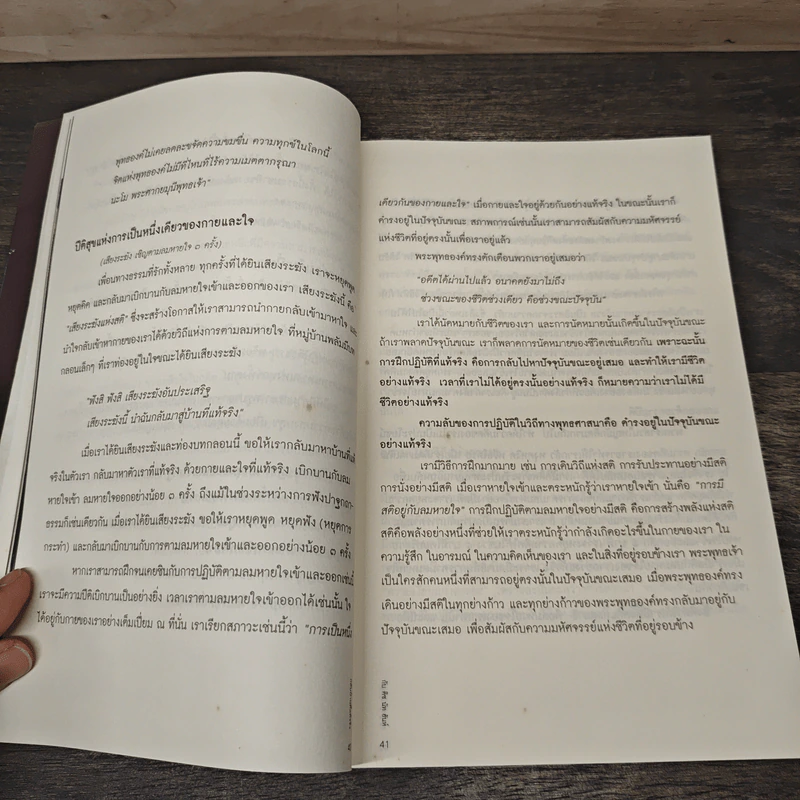 พุทธองค์ไม่เคยลดละขจัดความขมขื่น ความทุกข์ในโลกนี้
จิตแห่งพุทธองค์ไม่มีที่ไหนที่ไร้ความเมตตากรุณา
นะโม พระศากยมุนีพุทธเจ้า"
ปีติสุขแห่งการเป็นหนึ่งเดียวของกายและใจ
(เสียงระฆัง เชิญตามลมหายใจ ๓ ครั้ง)
เพื่อนทางธรรมที่รักทั้งหลาย ทุกครั้งที่ได้ยินเสียงระฆัง เราจะหยุดพูด
หยุดคิด และกลับมาเบิกบานกับลมหายใจเข้าและออกของเรา เสียงระฆังนี้ คือ
"เสียงระฆังแห่งสติ" ซึ่งจะสร้างโอกาสให้เราสามารถนำกายกลับเข้ามาหาใจ และ
นำใจกลับเข้าหากายของเราได้ด้วยวิถีแห่งการตามลมหายใจ ที่หมู่บ้านพลัมมีบท
กลอนเล็กๆ ที่เราท่องอยู่ในใจขณะได้ยินเสียงระฆัง
"ฟังสิ ฟังสิ เสียงระฆังอันประเสริฐ
เสียงระฆังนี้ นำฉันกลับมาสู่บ้านที่แท้จริง"
เมื่อเราได้ยินเสียงระฆังและท่องบทกลอนนี้ ขอให้เรากลับมาหาบ้านที่แท้
จริงในตัวเรา กลับมาหาตัวเราที่แท้จริง ด้วยกายและใจที่แท้จริง เบิกบานกับลม
หายใจเข้า ลมหายใจออกอย่างน้อย ๓ ครั้ง ถึงแม้ในช่วงระหว่างการฟังปาฐกถา-
ธรรมก็เช่นเดียวกัน เมื่อเราได้ยินเสียงระฆัง ขอให้เราหยุดพูด หยุดฟัง (หยุดการ
กระทำ) และกลับมาเบิกบานกับการตามลมหายใจเข้าและออกอย่างน้อย ๓ ครั้ง
หากเราสามารถฝึกจนเคยชินกับการปฏิบัติตามลมหายใจเข้าและออกเช่นนี้
เราจะมีความปีติเบิกบานเป็นอย่างยิ่ง เวลาเราตามลมหายใจเข้าออกได้เช่นนั้น ใจ
ได้อยู่กับกายของเราอย่างเต็มเปี่ยม ณ ที่นั่น เราเรียกสภาวะเช่นนี้ว่า "การเป็นหนึ่ง
เดียวกันของกายและใจ" เมื่อกายและใจอยู่ด้วยกันอย่างแท้จริง ในขณะนั้นเราก็
ดำรงอยู่ในปัจจุบันขณะ สภาพการณ์เช่นนั้นเราสามารถสัมผัสกับความมหัศจรรย์
แห่งชีวิตที่อยู่ตรงนั้นเพื่อเราอยู่แล้ว
พระพุทธองค์ทรงตักเตือนพวกเราอยู่เสมอว่า
"อดีตได้ผ่านไปแล้ว อนาคตยังมาไม่ถึง
ช่วงขณะของชีวิตช่วงเดียว คือช่วงขณะปัจจุบัน"
เราได้นัดหมายกับชีวิตของเรา และการนัดหมายนั้นเกิดขึ้นในปัจจุบันขณะ
ถ้าเราพลาดปัจจุบันขณะ เราก็พลาดการนัดหมายของชีวิตเช่นเดียวกัน เพราะฉะนั้น
การฝึกปฏิบัติที่แท้จริง คือการกลับไปหาปัจจุบันขณะอยู่เสมอ และทำให้เรามีชีวิต
อย่างแท้จริง เวลาที่เราไม่ได้อยู่ตรงนั้นอย่างแท้จริง ก็หมายความว่าเราไม่ได้มี
ชีวิตอย่างแท้จริง
ความลับของการปฏิบัติในวิถีทางพุทธศาสนาคือ ดำรงอยู่ในปัจจุบันขณะ
อย่างแท้จริง
เรามีวิธีการฝึกมากมาย เช่น การเดินวิถีแห่งสติ การรับประทานอย่างมีสติ
การนั่งอย่างมีสติ เมื่อเราหายใจเข้าและตระหนักรู้ว่าเราหายใจเข้า นั่นคือ "การมี
สติอยู่กับลมหายใจ" การฝึกปฏิบัติตามลมหายใจอย่างมีสติ คือการสร้างพลังแห่งสติ
สติคือพลังอย่างหนึ่งที่ช่วยให้เราตระหนักรู้ว่ากำลังเกิดอะไรขึ้นในกายของเรา ใน
ความรู้สึก ในอารมณ์ ในความคิดเห็นของเรา และในสิ่งที่อยู่รอบข้างเรา พระพุทธเจ้า
เป็นใครสักคนหนึ่งที่สามารถอยู่ตรงนั้นในปัจจุบันขณะเสมอ เมื่อพระพุทธองค์ทรง
เดินอย่างมีสติในทุกย่างก้าว และทุกย่างก้าวของพระพุทธองค์ทรงกลับมาอยู่กับ
ปัจจุบันขณะเสมอ เพื่อสัมผัสกับความมหัศจรรย์แห่งชีวิตที่อยู่รอบข้าง
ติช นัท ฮันห์
41